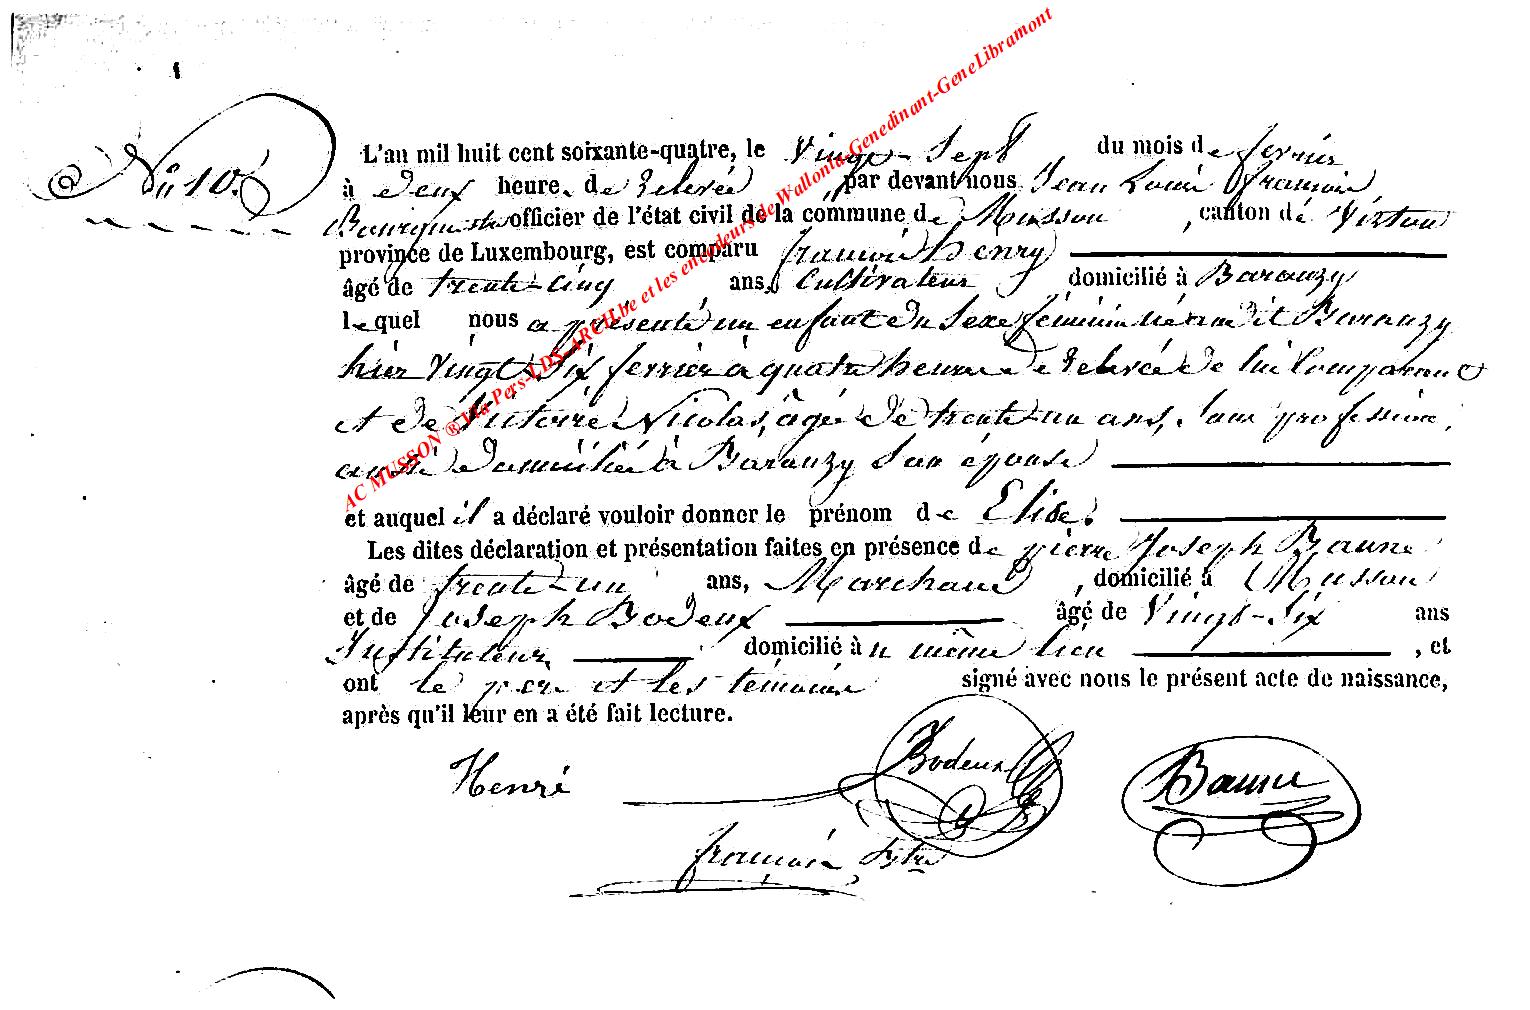 N° 10.
L'an mil huit cent soixante-quatre, le Vingt-Sept du mois de fevrier
à deux heures de relevée par devant nous Jean Louis françois
Bourgmestre officier de l'état civil de la commune de Musson, canton de Virton
province de Luxembourg, est comparu françois henry
âgé de trente-cinq ans, Cultivateur domicilié à Baranzy
lequel nous a présenté un enfant du Sexe féminin né audit Baranzy
hier Vingt-Six fevrier à quatre heures de relevée de lui Comparant
et de Victoire Nicolas, âgée de trente-un ans, Sans profession,
aussi domiciliée à Baranzy Son épouse
et auquel il a déclaré vouloir donner le prénom de Elise.
Les dites déclaration et présentation faites en présence de pierre Joseph Baune
âgé de trente-un ans, Marchand, domicilié à Musson
et de Joseph Bodeux âgé de Vingt-Six ans
Instituteur, domicilié au même lieu, et
ont le père et les témoins signé avec nous le présent acte de naissance,
après qu'il leur en a été fait lecture.
Henré
Bodeux
Baune
françois
AC MUSSON ® Via Pers-LDS-ARCH.be et les encodeurs de Wallonia-Genedinant-GeneLibramont